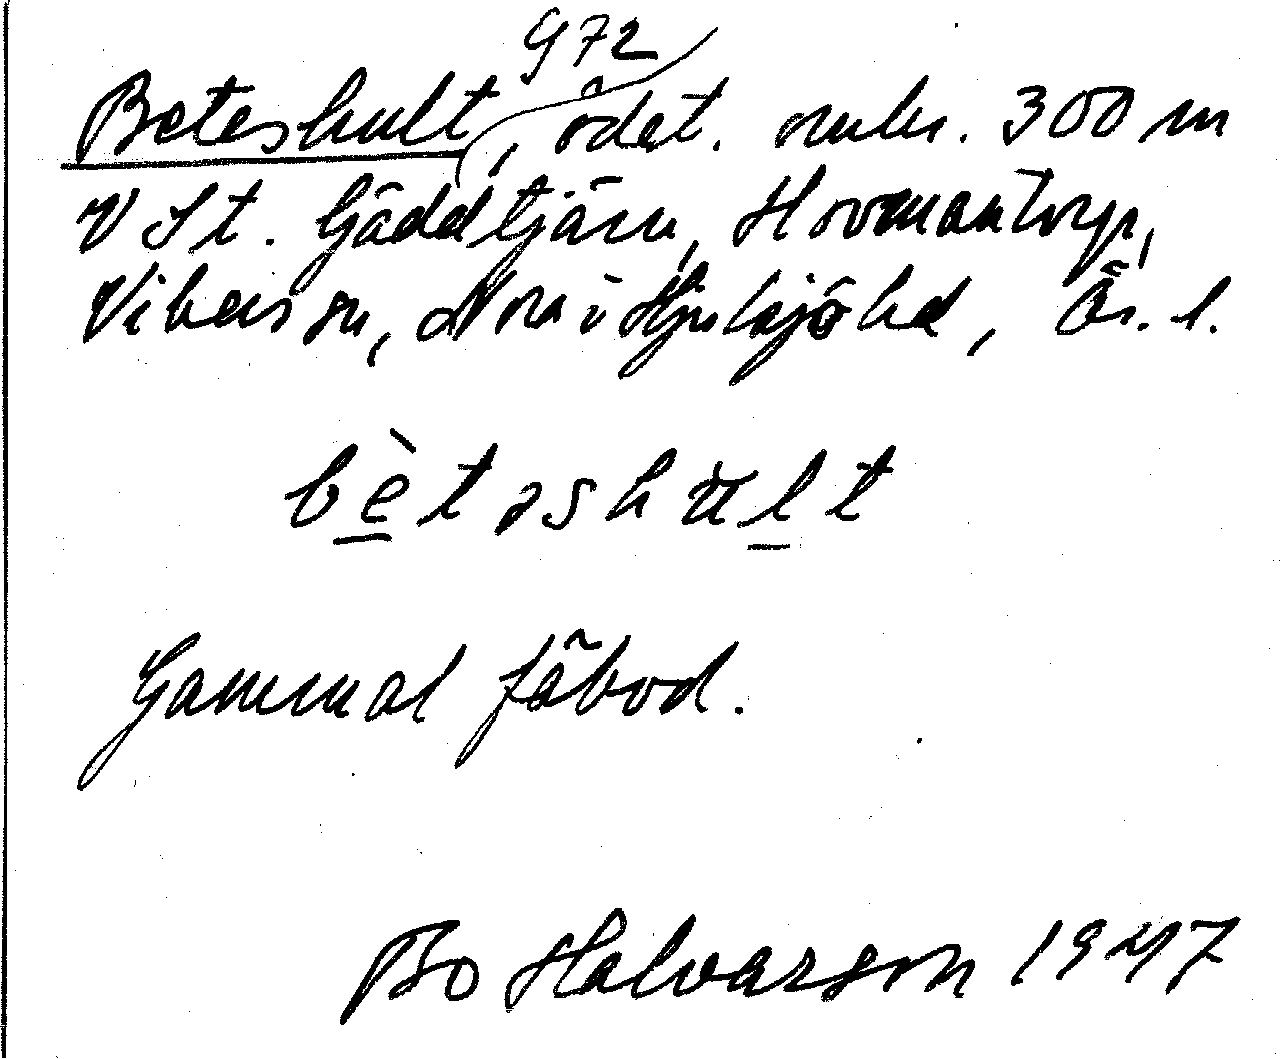 972
Beteshult, ödet. omkr. 300 m
V St. Gäddtjärn, Hovmantorp,
Vikers sn, Nora o Hjulsjö hd, Ör. l.
bètəshult
Gammal fäbod.
Bo Halvarson 1947